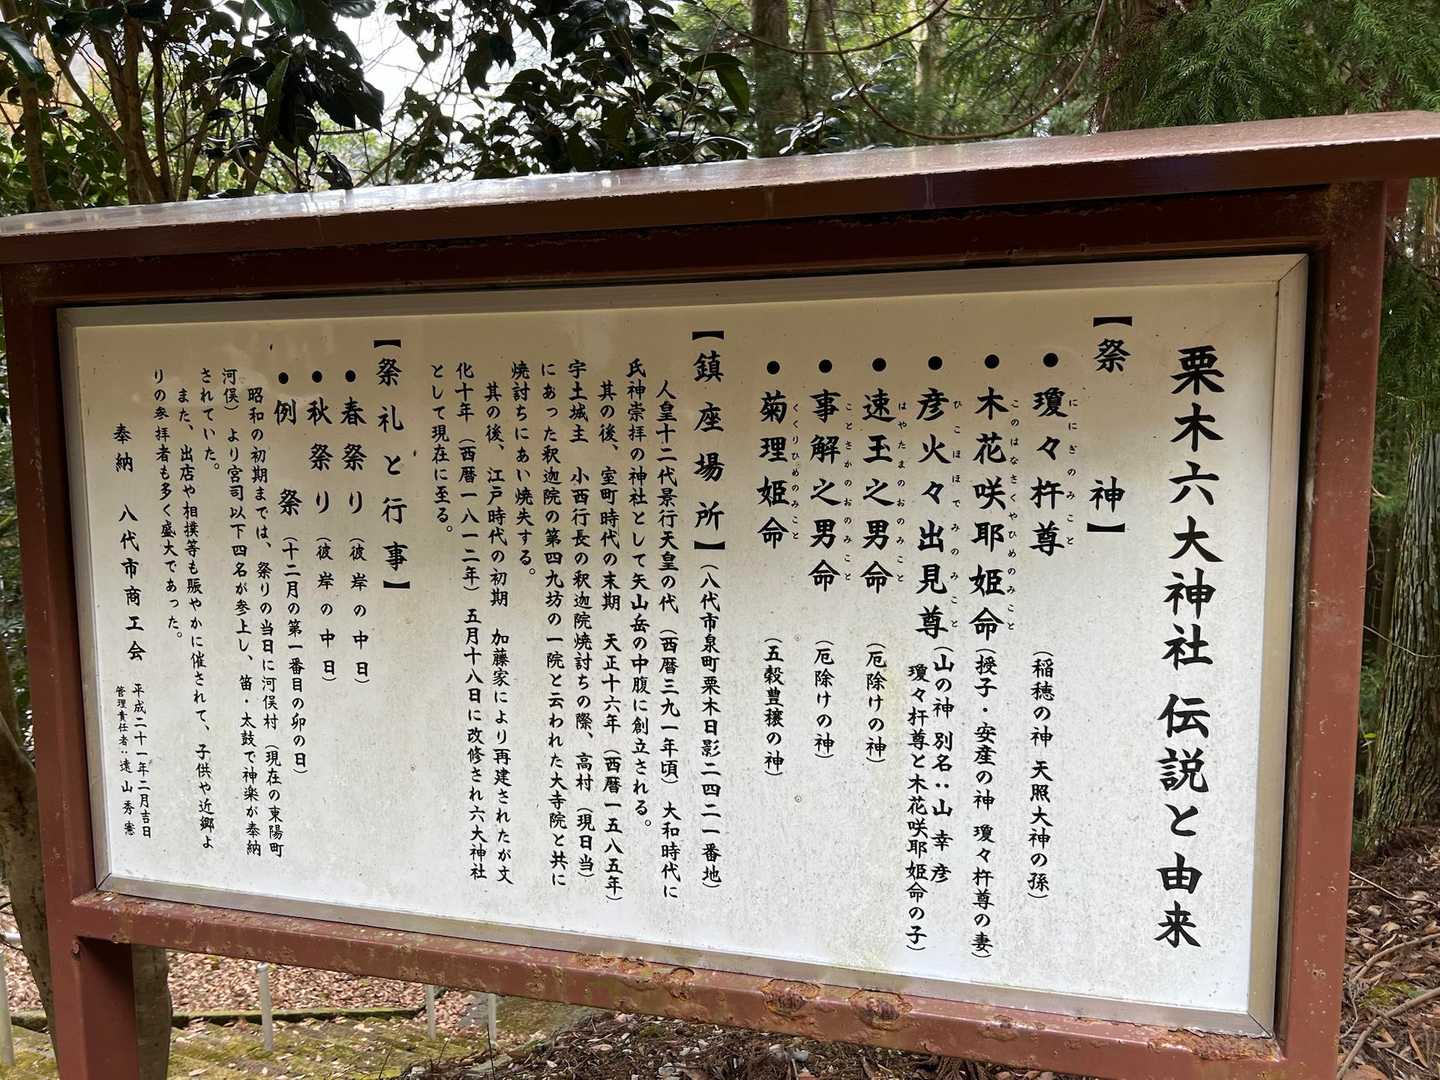 栗木六大神社 伝説と由来
【祭神】
● 瓊々杵尊 (稲穂の神 天照大神の孫)
ににぎのみこと
● 木花咲耶姫命 (授子・安産の神 瓊々杵尊の妻)
このはなさくやひめのみこと
● 彦火々出見尊 (山の神 別名:山幸彦
ひこほほでみのみこと
瓊々杵尊と木花咲耶姫命の子)
● 速玉之男命 (厄除けの神)
はやたまのおのみこと
● 事解之男命 (厄除けの神)
ことさかのおのみこと
● 菊理姫命 (五穀豊穣の神)
くくりひめのみこと
【鎮座場所】(八代市泉町栗木日影二四二一番地)
人皇十二代景行天皇の代(西暦三九一年頃)大和時代に
氏神崇拝の神社として矢山岳の中腹に創立される。
其の後、室町時代の末期 天正十六年(西暦一五八五年)
宇土城主 小西行長の釈迦院焼討ちの際、高村(現日当)
にあった釈迦院の第四九坊の一院と云われた大寺院と共に
焼討ちにあい焼失する。
其の後、江戸時代の初期 加藤家により再建されたが文
化十年(西暦一八一二年)五月十八日に改修され六大神社
として現在に至る。
【祭礼と行事】
● 春祭り(彼岸の中日)
● 秋祭り(彼岸の中日)
● 例 祭(十二月の第一番目の卯の日)
昭和の初期までは、祭りの当日に河俣村(現在の東陽町
河俣)より宮司以下四名が参上し、笛・太鼓で神楽が奉納
されていた。
また、出店や相撲等も賑やかに催されて、子供や近郷よ
りの参拝者も多く盛大であった。
奉納 八代市商工会
平成二十一年二月吉日
管理責任者:遠山秀憲